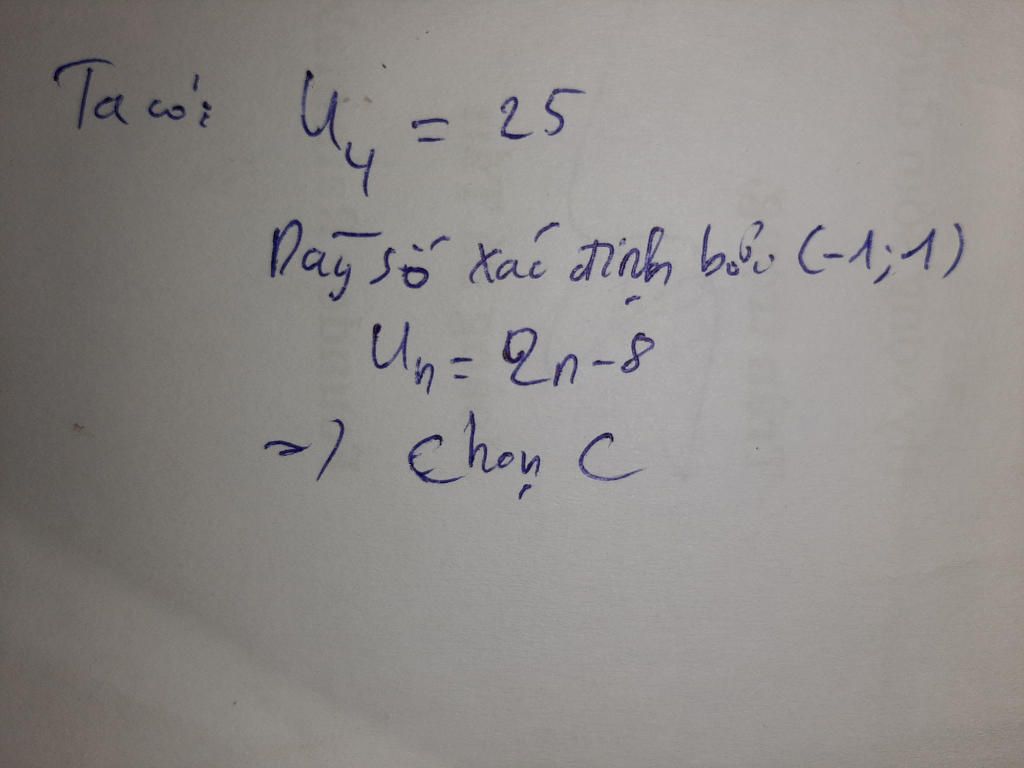 Ta có: U₄ = 25
Dãy số xác định bởi (-1;1)
Uₙ = 2n-8
=) Chọn C